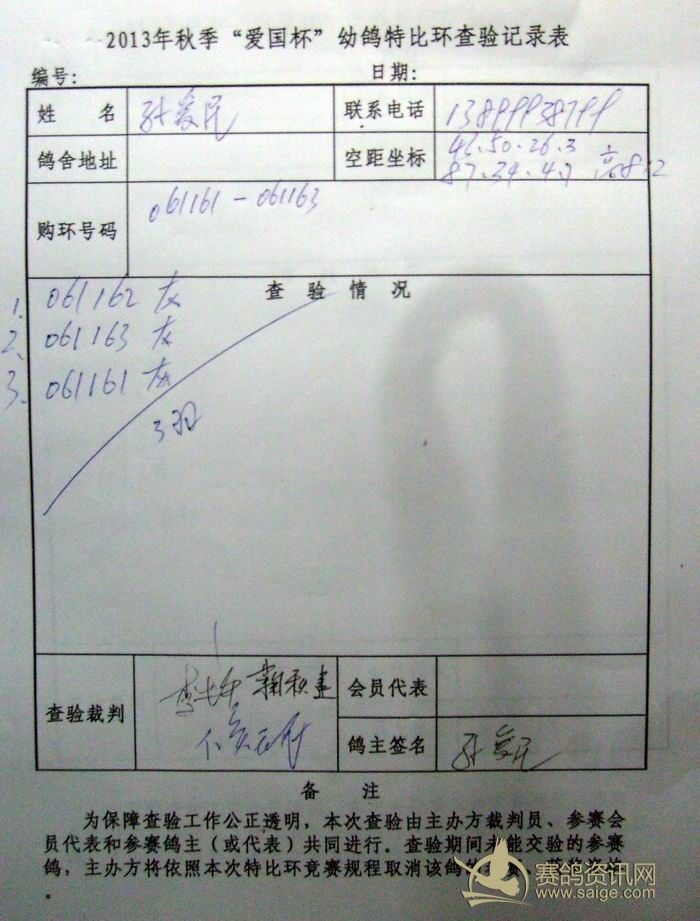 2013年秋季“爱国杯”幼鸽特比环查验记录表
编号： 日期：
姓 名 孙爱民 联系电话
鸽舍地址 空距坐标 43.50.26.3
87.34.4.7 高812
购环号码 061161-061163
查 验 情 况
1. 061162 灰
2、 061163 灰
3、 061161 灰
3羽
查验裁判 会员代表
鸽主签名 孙爱民
备 注
为保障查验工作公正透明，本次查验由主办方裁判员、参赛会
员代表和参赛鸽主（或代表）共同进行。查验期间未能交验的参赛
鸽，主办方将依照本次特比环竞赛规程取消该鸽的
赛鸽资讯网
www.saige.com